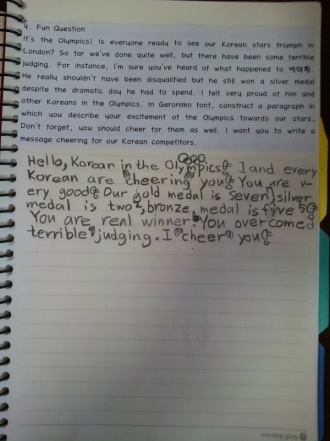 4. Fun Question
It's the Olympics! Is everyone ready to see our Korean stars triumph in
London? So far we've done quite well, but there have been some terrible
judging. For instance, I'm sure you've heard of what happened to 박태환.
He really shouldn't have been disqualified but he still won a silver medal
despite the dramatic day he had to spend. I felt very proud of him and
other Koreans in the Olympics. In Geronimo font, construct a paragraph in
which you describe your excitement of the Olympics towards our stars.
Don't forget, you should cheer for them as well. I want you to write a
message cheering for our Korean competitors.
Hello, Korean in the Olympics! I and every
Korean are cheering you! You are v-
ery good! Our gold medal is seven, silver
medal is two, bronze, medal is five 5!
You are real winner. You overcomed
terrible judging. I cheer you!